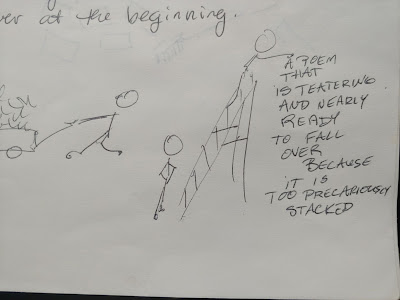 at the beginning.
A POEM
THAT
IS TEATERING
AND NEARLY
READY
TO FALL
OVER
BECAUSE
IT IS
TOO PRECARIOUSLY
STACKED